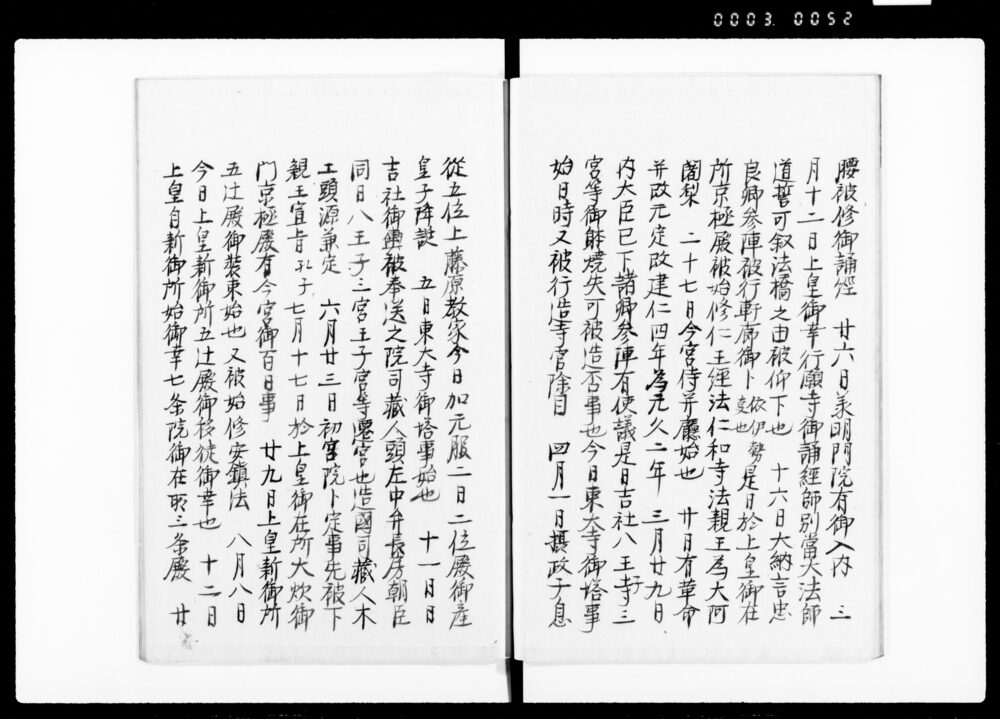 0003 0052
腰被修御誦経　廿六日美明門院有御入内　三
月十二日上皇御幸行願寺御誦経師別當大法師
道誓可叙法橋之由被仰下也　十六日大納言忠
良卿参陣被行軒廊御卜 依伊勢変也 是日於上皇御在
所京極殿被始修仁王経法仁和寺法親王為大阿
闍梨　二十七日今宮侍并廳始也　廿日有革命
并改元定改建仁四年為元久二年　三月廿九日
内大臣已下諸卿参陣有使議是日吉社八王子三
宮等御躰焼失可被造否事也今日東大寺御塔事
始日時又被行造寺官除目　四月一日摂政子息
從五位上藤原教家今日加元服二日二位殿御産
皇子降誕　五日東大寺御塔事始也　十一日日
吉社御輿被奉送之院司蔵人頭左中弁長房朝臣
同日八王子三宮王子宮等遷宮也造國司蔵人木
工頭源兼定　六月廿三日初宮院卜定事先被下
親王宣旨 礼子 七月十七日於上皇御在所大炊御
門京極殿有今宮御百日事　廿九日上皇新御所
五辻殿御装束始也又被始修安鎮法　八月八日
今日上皇新御所五辻殿御移徙御幸也　十二日
上皇自新御所始御幸七条院御在所三条殿　廿